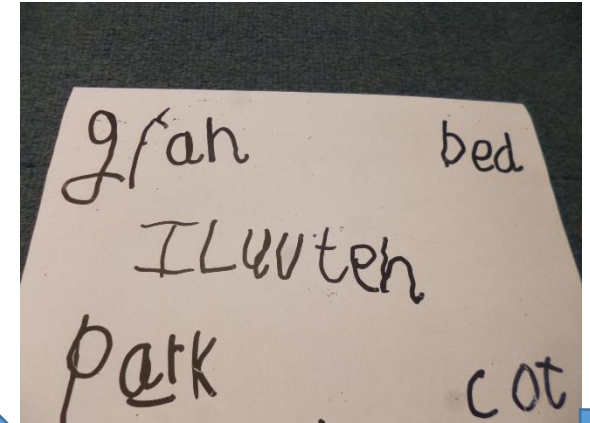 gran bed
I Luv ten
park cot